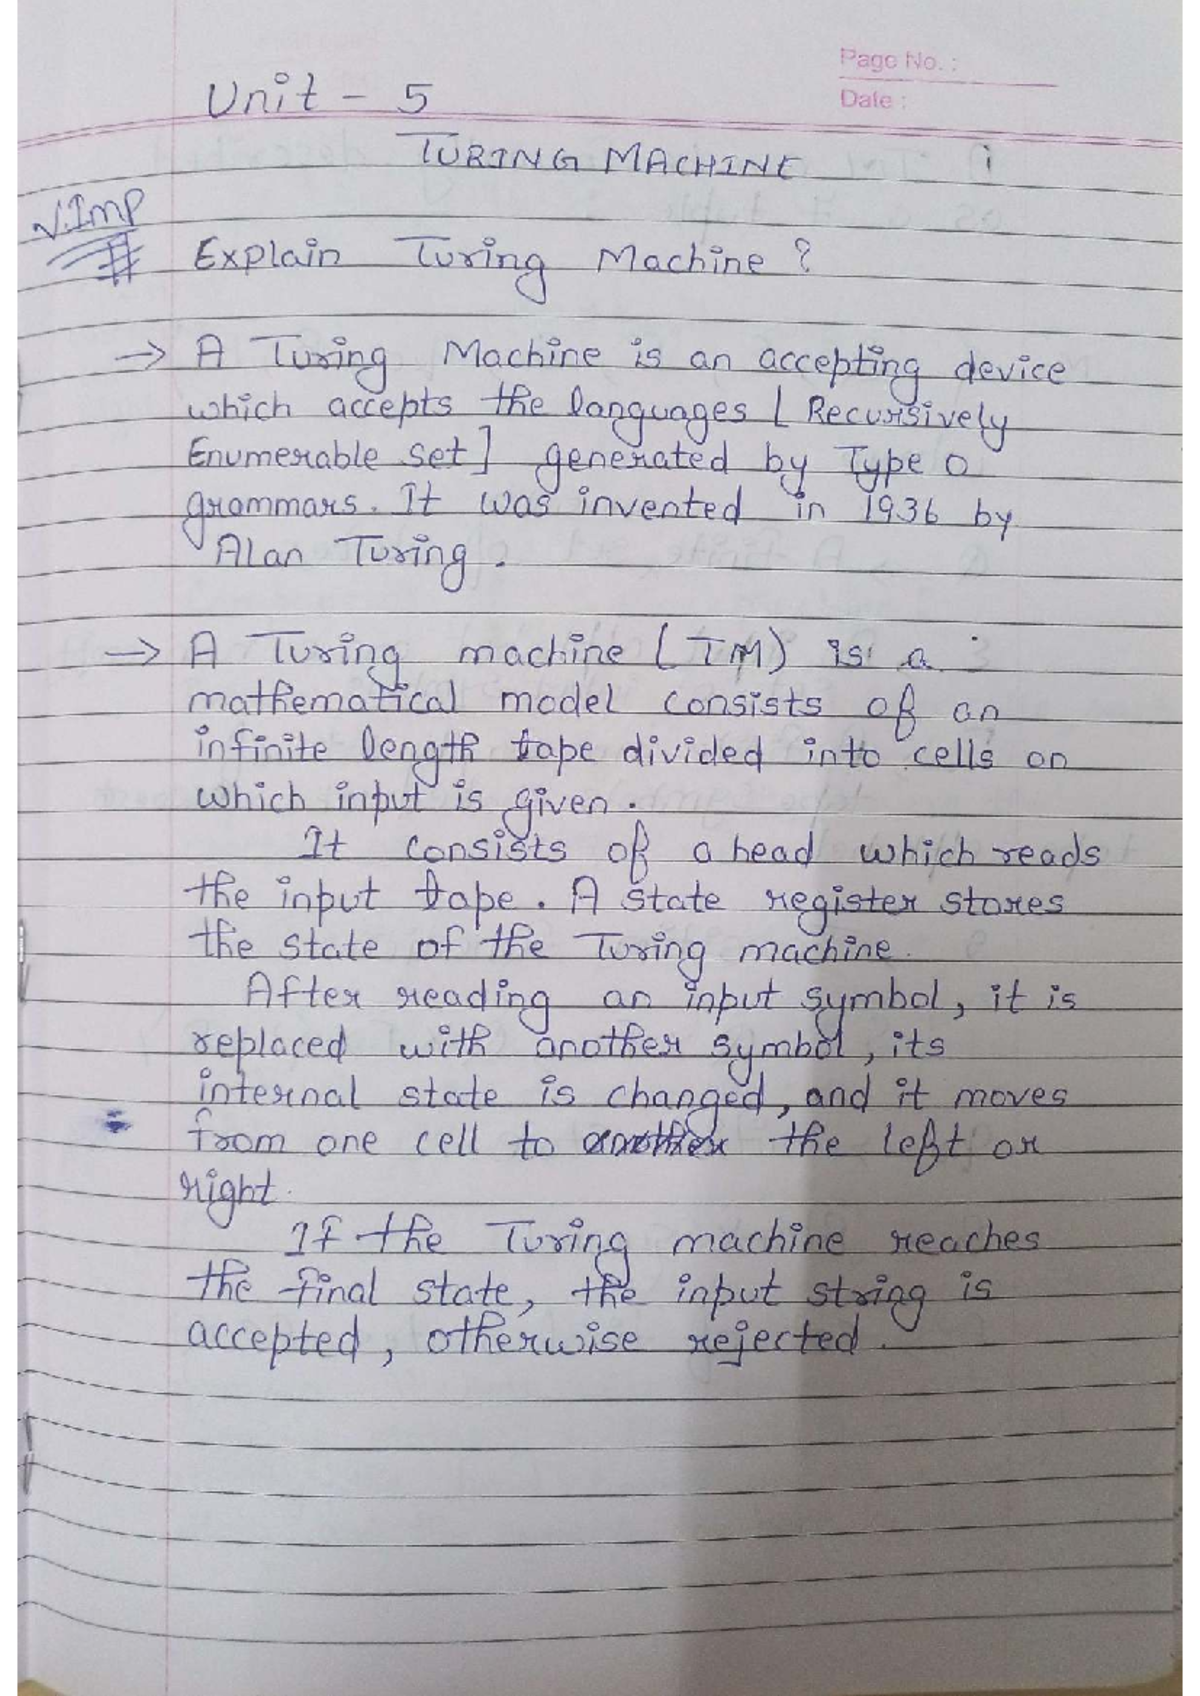 Page No. :
Date :
Unit - 5
TURING MACHINE
V.Imp
# Explain Turing Machine ?
→ A Turing Machine is an accepting device
which accepts the languages [ Recursively
Enumerable set ] generated by Type 0
grammars. It was invented in 1936 by
Alan Turing .
→ A Turing machine ( TM ) is a
mathematical model consists of an
infinite length tape divided into cells on
which input is given .
It consists of a head which reads
the input tape . A state register stores
the state of the Turing machine .
After reading an input symbol, it is
replaced with another symbol, its
internal state is changed, and it moves
from one cell to the left or
right .
If the Turing machine reaches
the final state, the input string is
accepted, otherwise rejected .